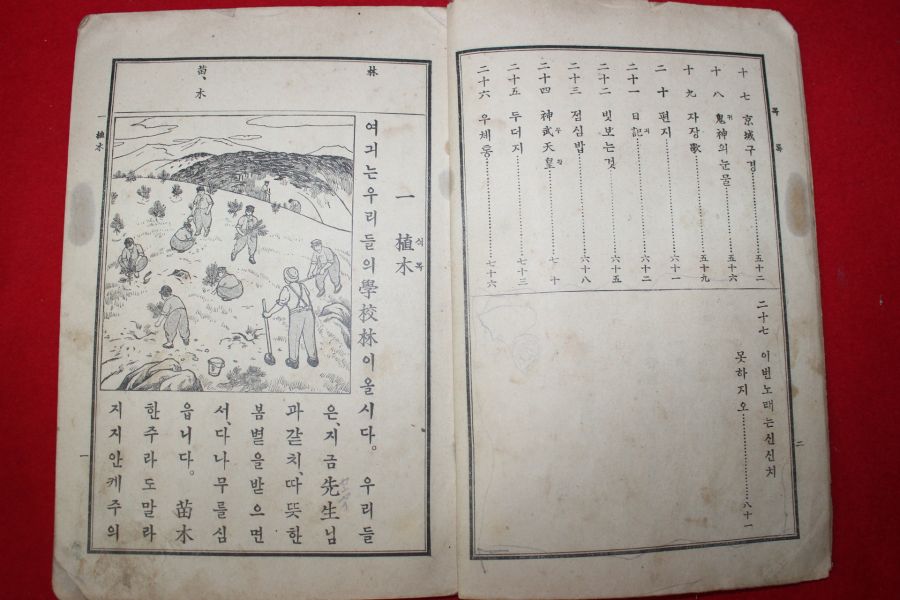 목록
十七 京城구경 五十二
十八 鬼神의눈물 五十六
귀
十九 자장歌 五十九
二十 편지 六十一
二十一 日記 六十二
긔
二十二 빗보는것 六十五
二十三 점심밥 六十八
二十四 神武天皇 七十
무 황
二十五 두더지 七十三
二十六 우체통 七十六
二十七 이번노래는신신치
못하지오 八十一
二
林
苗、木
一 植木
식목
여긔는우리들의學校林이올시다。 우리들
은、지금先生님
과갓치、따뜻한
봄볏을받으면
서、다나무를심
읍니다。 苗木
한주라도말라
지지안케주의
一 植木
一